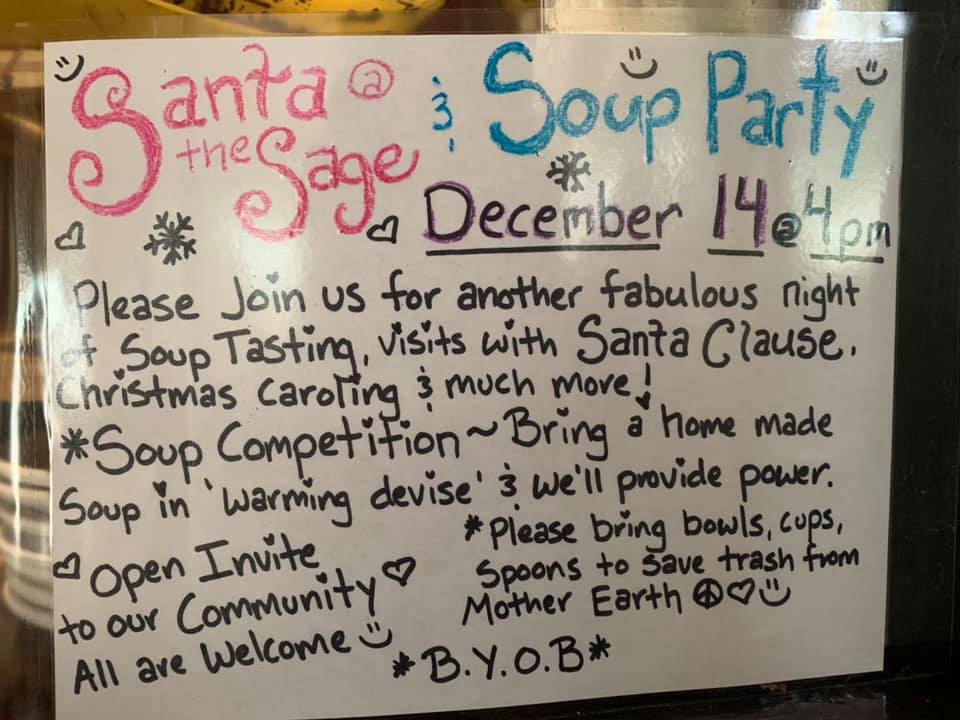 Santa @ & Soup Party
the Sage
December 14 @ 4pm
Please Join us for another fabulous night
of Soup Tasting, visits with Santa Clause,
Christmas caroling & much more!
*Soup Competition ~ Bring a home made
Soup in 'warming devise' & we'll provide power.
*Please bring bowls, cups,
Spoons to save trash from
Mother Earth ☮♡☺
♡ Open Invite
to our Community ♡
All are Welcome ☺
*B.Y.O.B*